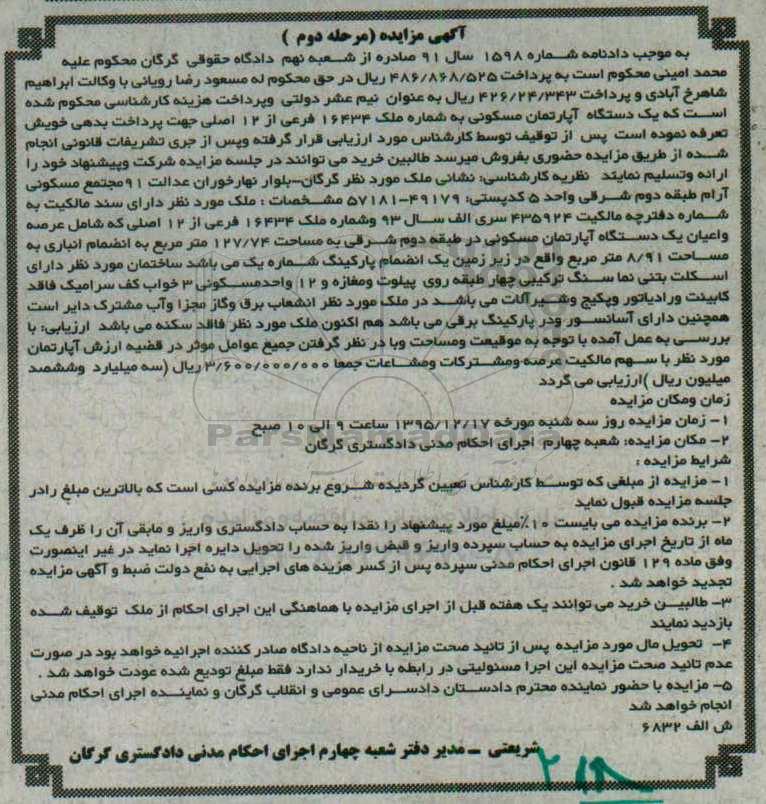 آگهی مزایده (مرحله دوم )
به موجب دادنامه شماره ۱۵۹۸ سال ۹۱ صادره از شعبه نهم دادگاه حقوقی گرگان محکوم علیه
محمد امینی محکوم است به پرداخت ۴۸۶/۸۶۸/۵۲۵ ریال در حق محکوم له مسعود رضا رویانی با وکالت ابراهیم
شاهرخ آبادی و پرداخت ۴۲۶/۲۴/۳۴۳ ریال به عنوان نیم عشر دولتی وپرداخت هزینه کارشناسی محکوم شده
است که یک دستگاه آپارتمان مسکونی به شماره ملک ۱۶۴۳۴ فرعی از ۱۲ اصلی جهت پرداخت بدهی خویش
تعرفه نموده است پس از توقیف توسط کارشناس مورد ارزیابی قرار گرفته وپس از جری تشریفات قانونی انجام
شده از طریق مزایده حضوری بفروش میرسد طالبین خرید می توانند در جلسه مزایده شرکت وپیشنهاد خود را
ارائه وتسلیم نمایند نظریه کارشناسی: نشانی ملک مورد نظر گرگان-بلوار نهارخوران عدالت ۹۱مجتمع مسکونی
آرام طبقه دوم شرقی واحد ۵ کدپستی: ۴۹۱۷۹-۵۷۱۸۱ مشخصات : ملک مورد نظر دارای سند مالکیت به
شماره دفترچه مالکیت ۴۳۵۹۲۴ سری الف سال ۹۳ وشماره ملک ۱۶۴۳۴ فرعی از ۱۲ اصلی که شامل عرصه
واعیان یک دستگاه آپارتمان مسکونی در طبقه دوم شرقی به مساحت ۱۲۷/۷۴ متر مربع به انضمام انباری به
مساحت ۸/۹۱ متر مربع واقع در زیر زمین یک انضمام پارکینگ شماره یک می باشد ساختمان مورد نظر دارای
اسکلت بتنی نما سنگ ترکیبی چهار طبقه روی پیلوت ومغازه و ۱۲ واحدمسکونی ۳ خواب کف سرامیک فاقد
کابینت ورادیاتور وپکیج وشیرآلات می باشد در ملک مورد نظر انشعاب برق وگاز مجزا وآب مشترک دایر است
همچنین دارای آسانسور ودر پارکینگ برقی می باشد هم اکنون ملک مورد نظر فاقد سکنه می باشد ارزیابی: با
بررسی به عمل آمده با توجه به موقیعت ومساحت وبا در نظر گرفتن جمیع عوامل موثر در قضیه ارزش آپارتمان
مورد نظر با سهم مالکیت عرصه ومشترکات ومشاعات جمعا ۳/۶۰۰/۰۰۰/۰۰۰ ریال (سه میلیارد وششصد
میلیون ریال )ارزیابی می گردد
زمان ومکان مزایده
۱- زمان مزایده روز سه شنبه مورخه ۱۳۹۵/۱۲/۱۷ ساعت ۹ الی ۱۰ صبح
۲- مکان مزایده: شعبه چهارم اجرای احکام مدنی دادگستری گرگان
شرایط مزایده :
۱- مزایده از مبلغی که توسط کارشناس تعیین گردیده شروع برنده مزایده کسی است که بالاترین مبلغ رادر
جلسه مزایده قبول نماید
۲- برنده مزایده می بایست ۱۰٪مبلغ مورد پیشنهاد را نقدا به حساب دادگستری واریز و مابقی آن را ظرف یک
ماه از تاریخ اجرای مزایده به حساب سپرده واریز و قبض واریز شده را تحویل دایره اجرا نماید در غیر اینصورت
وفق ماده ۱۲۹ قانون اجرای احکام مدنی سپرده پس از کسر هزینه های اجرایی به نفع دولت ضبط و آگهی مزایده
تجدید خواهد شد .
۳- طالبین خرید می توانند یک هفته قبل از اجرای مزایده با هماهنگی این اجرای احکام از ملک توقیف شده
بازدید نمایند
۴- تحویل مال مورد مزایده پس از تائید صحت مزایده از ناحیه دادگاه صادر کننده اجرائیه خواهد بود در صورت
عدم تائید صحت مزایده این اجرا مسئولیتی در رابطه با خریدار ندارد فقط مبلغ تودیع شده عودت خواهد شد .
۵- مزایده با حضور نماینده محترم دادستان دادسرای عمومی و انقلاب گرگان و نماینده اجرای احکام مدنی
انجام خواهد شد
ش الف ۶۸۳۲
شریعتی – مدیر دفتر شعبه چهارم اجرای احکام مدنی دادگستری گرگان